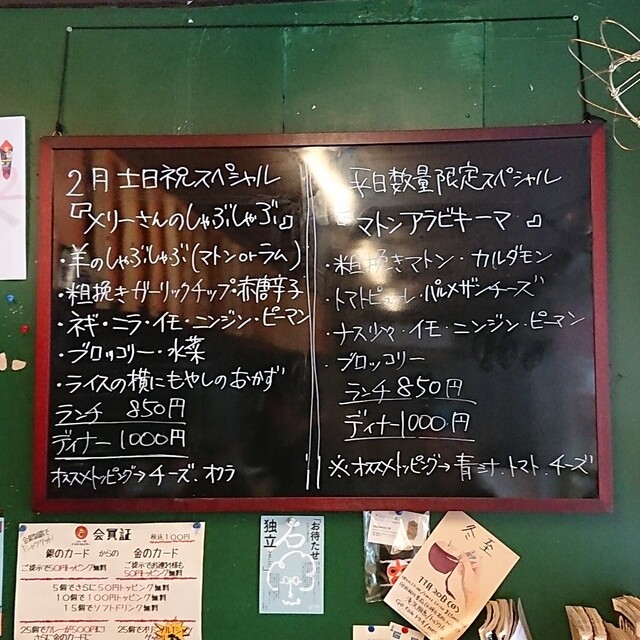 2月 土日祝スペシャル
『メリーさんのしゃぶしゃぶ』
・羊のしゃぶしゃぶ(マトンorラム)
・粗挽きガーリックチップ・赤唐辛子
・ネギ・ニラ・イモ・ニンジン・ピーマン
・ブロッコリー・水菜
・ライスの横にもやしのおかず
ランチ 850円
ディナー 1000円
オススメトッピング→チーズ、オクラ
平日数量限定スペシャル
『マトンアラビキーマ』
・粗挽きマトン・カルダモン
・トマトピューレ・パルメザンチーズ
・ナス・イモ・ニンジン・ピーマン
・ブロッコリー
ランチ 850円
ディナー1000円
※オススメトッピング→青ネギ、トマト、チーズ
会員証
税込100円
銀のカード からの 金のカード
ご提示で50円トッピング無料
ご提示でお連れ様も
50円トッピング無料
5個でさらに50円トッピング無料
10個で100円トッピング無料
15個でソフトドリンク無料
25個でカレーが500円に!
さらに金のカードに
25個でオリ
「お待たせ
独立
冬至